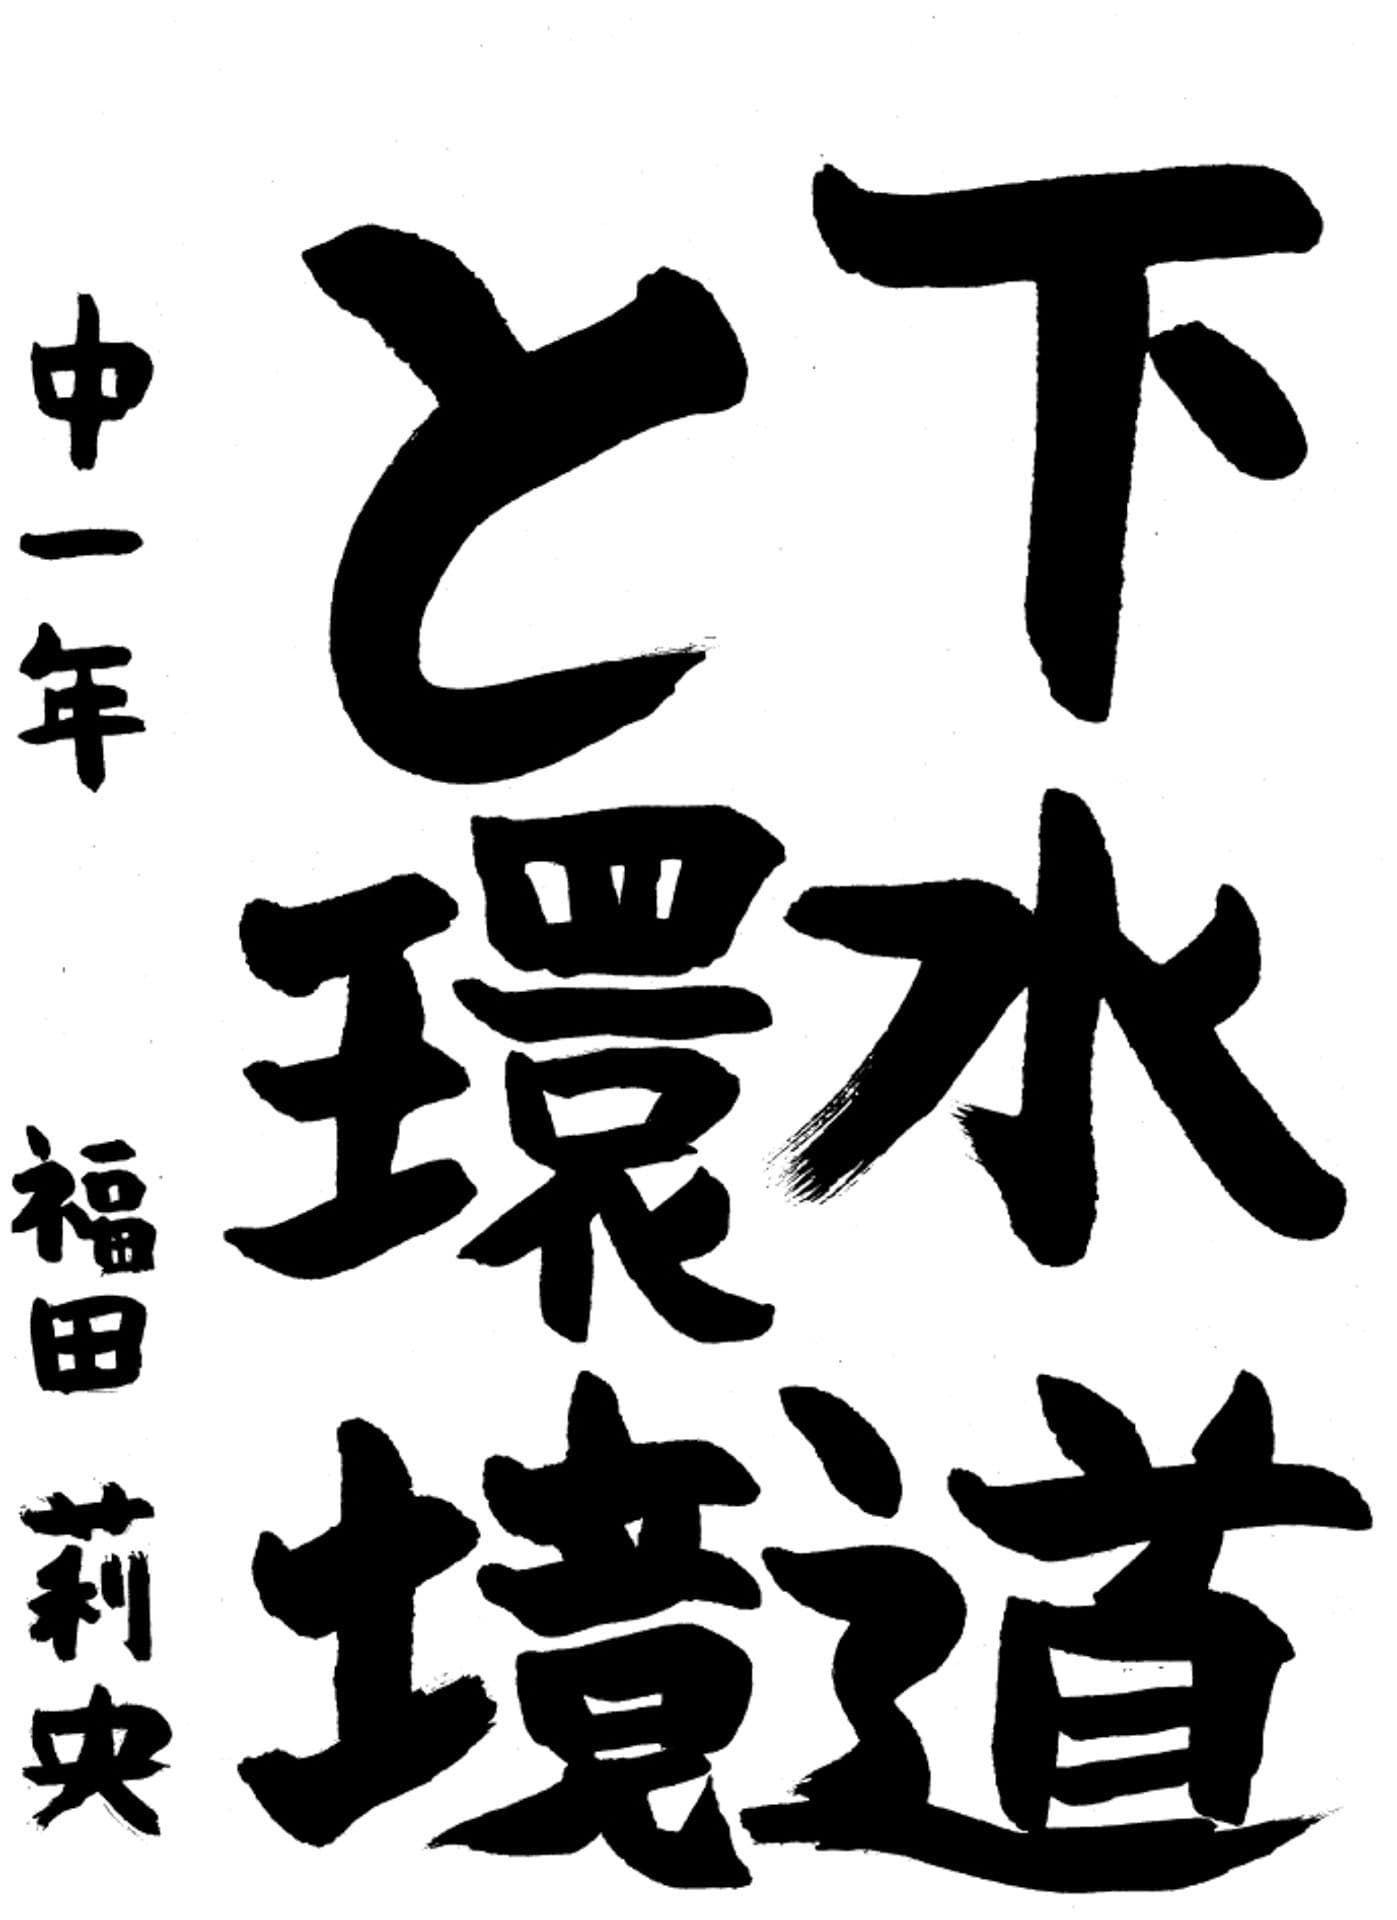 下水道
と環境
中一年 福田莉央